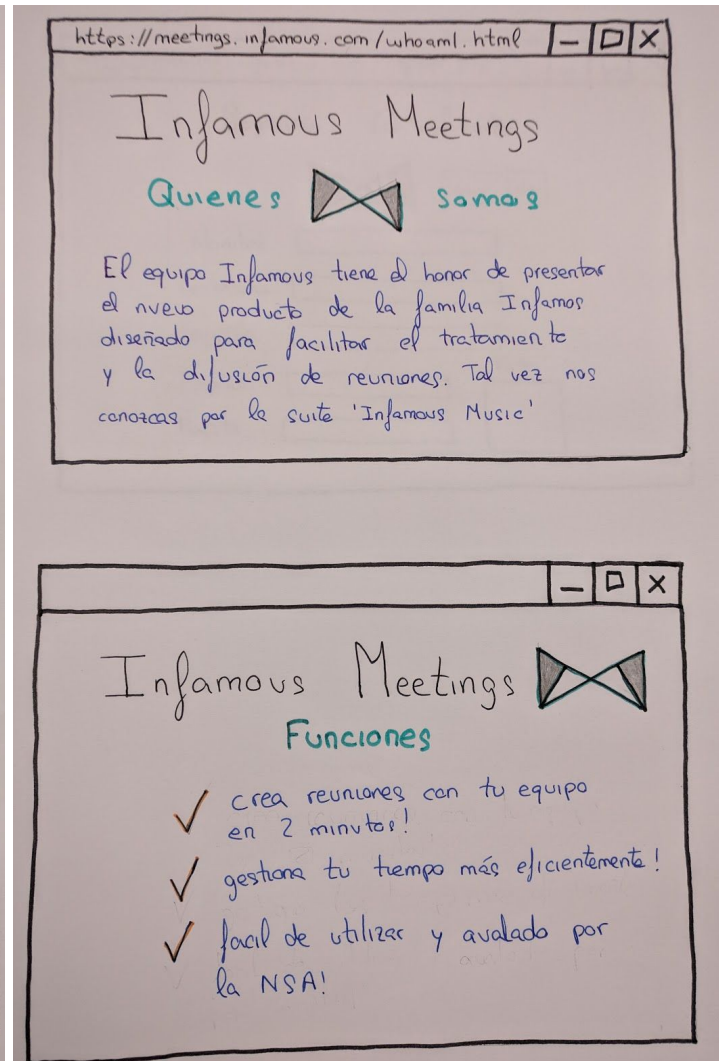 https://meetings.infamous.com/whoamI.html
Infamous Meetings
Quienes somos
El equipo Infamous tiene el honor de presentar
el nuevo producto de la familia Infamos
diseñado para facilitar el tratamiento
y la difusión de reuniones. Tal vez nos
conozcas por la suite 'Infamous Music'
Infamous Meetings
Funciones
crea reuniones con tu equipo
en 2 minutos!
gestiona tu tiempo más eficientemente!
facil de utilizar y avalado por
la NSA!